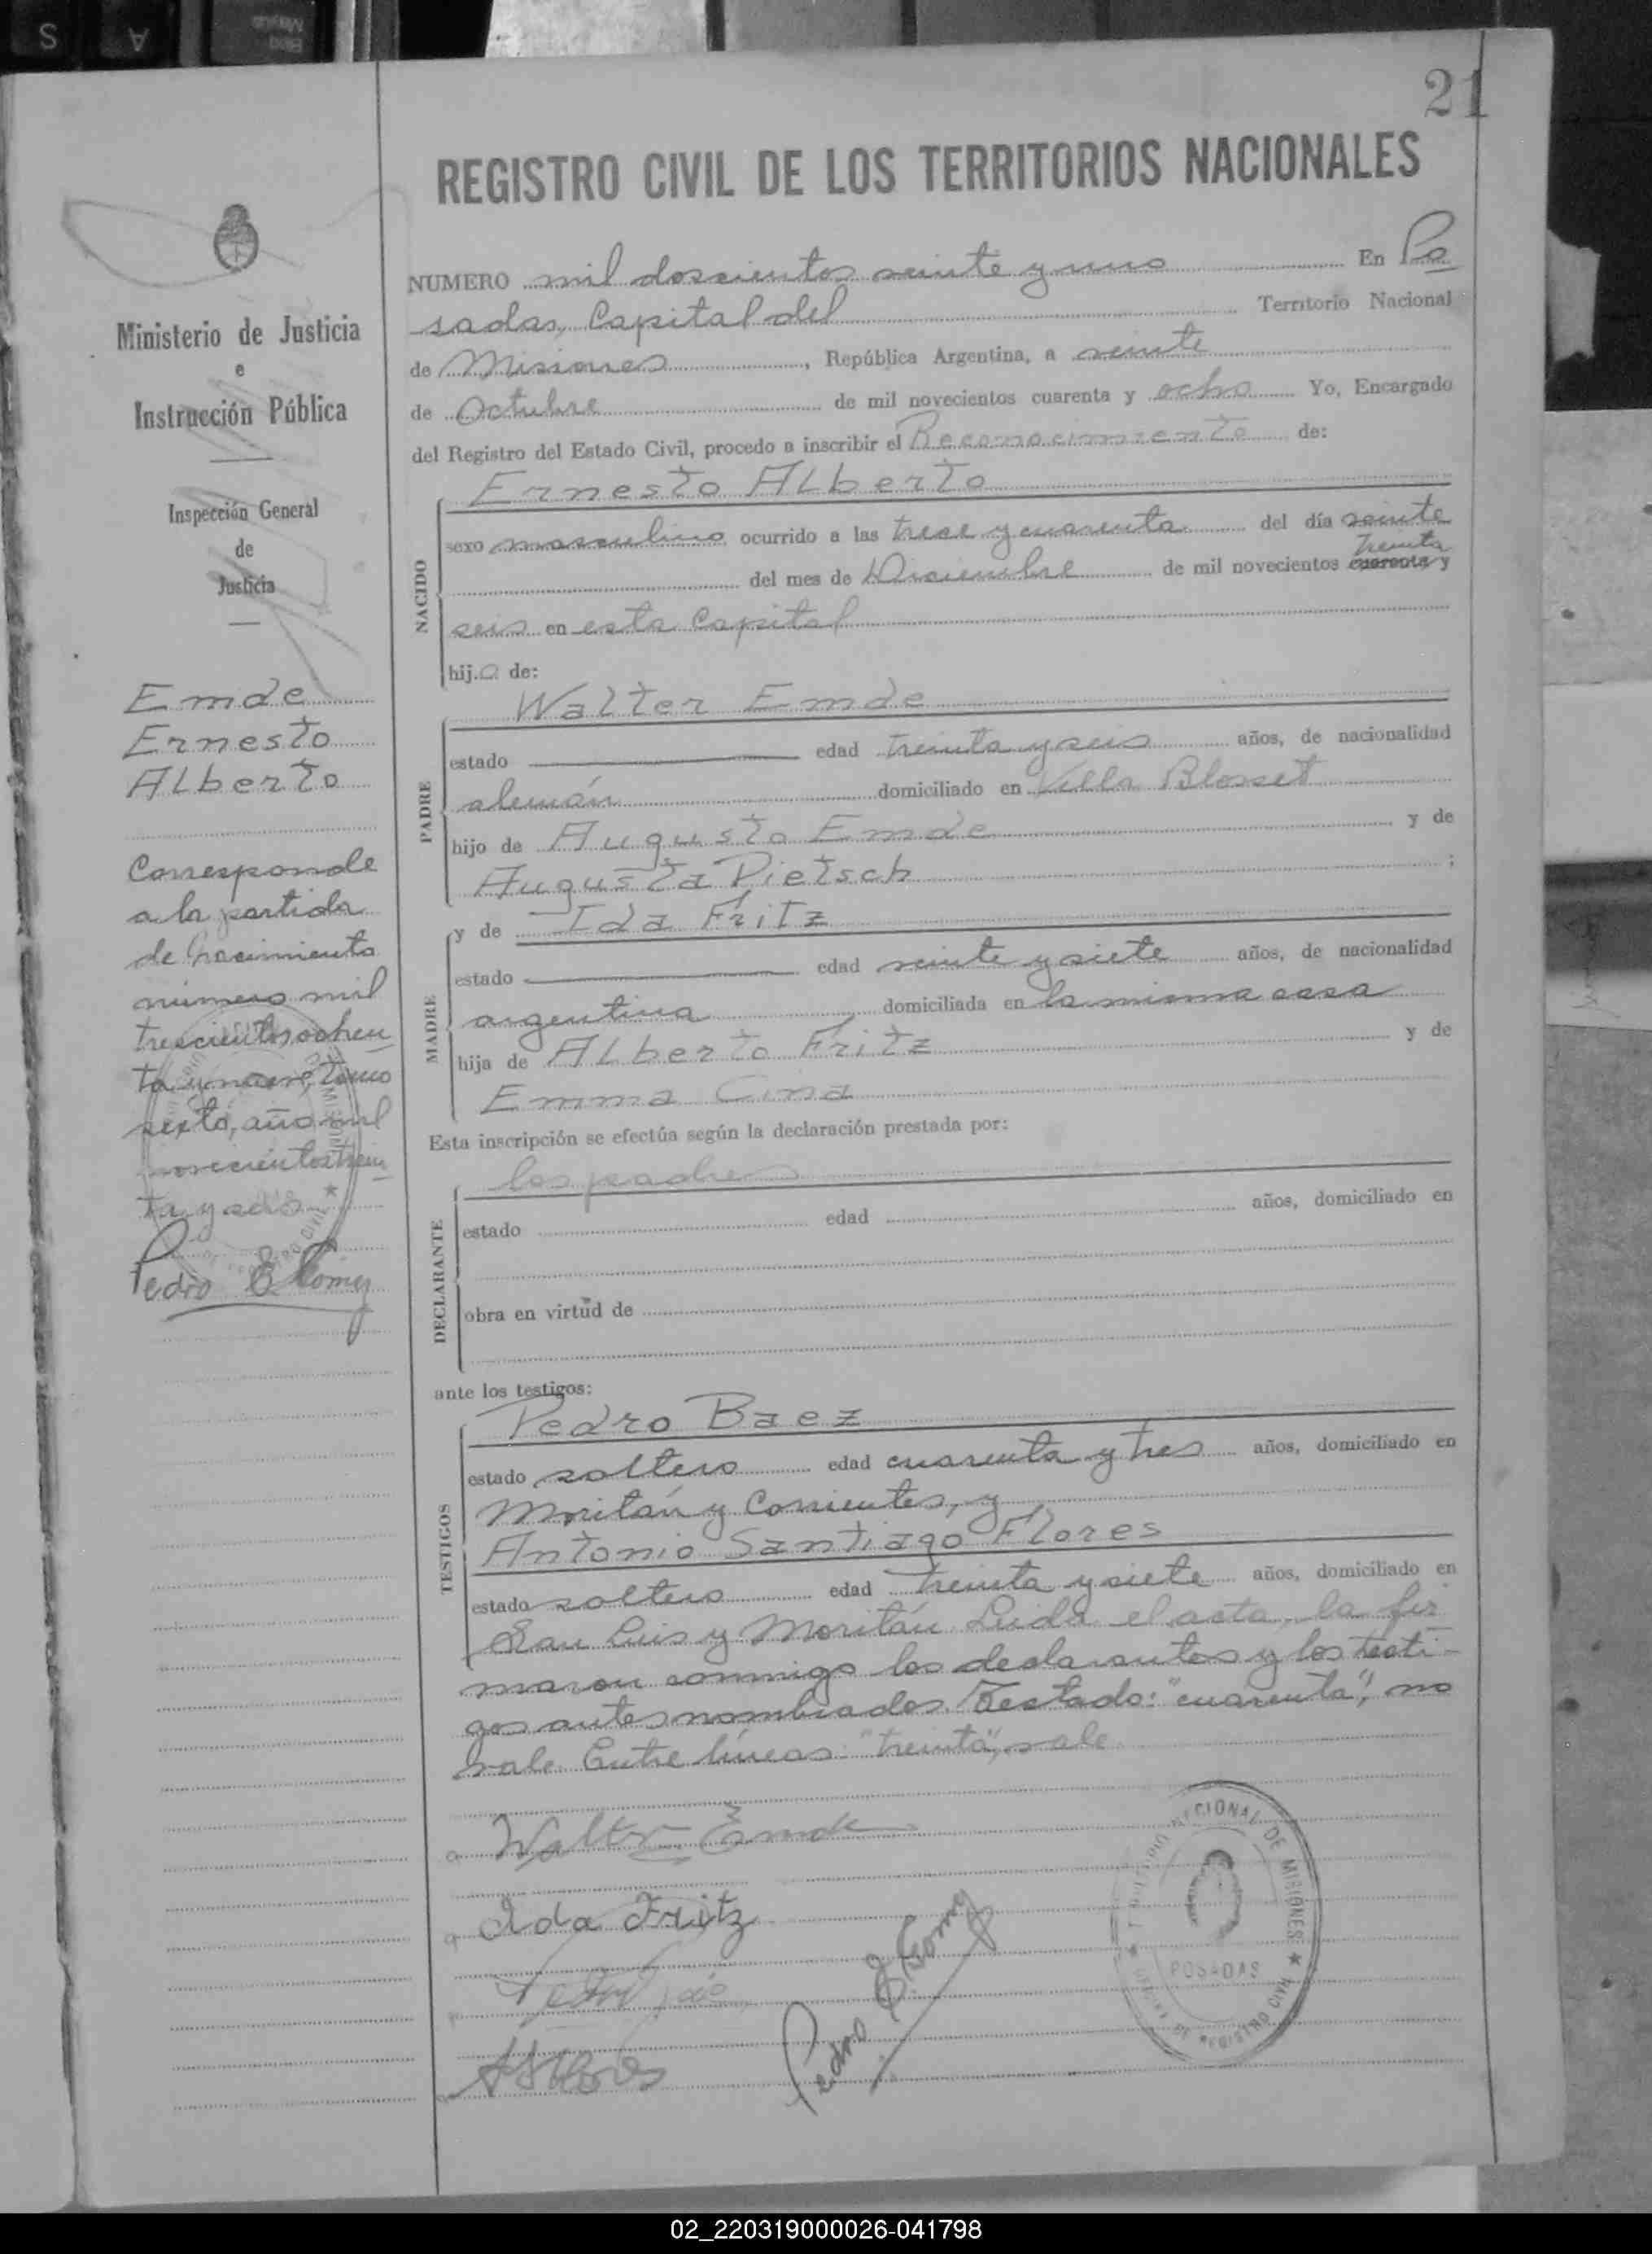 21
REGISTRO CIVIL DE LOS TERRITORIOS NACIONALES
NUMERO mil doscientos veinte y uno En Po
sadas, Capital del Territorio Nacional
de Misiones, República Argentina, a veinte
de Octubre de mil novecientos cuarenta y ocho Yo, Encargado
del Registro del Estado Civil, procedo a inscribir el Reconocimiento de:
NACIDO
Ernesto Alberto
sexo masculino ocurrido a las trece y cuarenta del día veinte
treinta
del mes de Diciembre de mil novecientos cuarenta y
seis en esta Capital
hijo de:
PADRE
Walter Emde
estado edad treinta y seis años, de nacionalidad
alemán domiciliado en Villa Blosset
hijo de Augusto Emde y de
Augusta Pietsch ;
MADRE
y de Ida Fritz
estado edad veinte y siete años, de nacionalidad
argentina domiciliada en la misma casa
hija de Alberto Fritz y de
Emma Cina
Esta inscripción se efectúa según la declaración prestada por:
DECLARANTE
los padres
estado edad años, domiciliado en
obra en virtud de
ante los testigos:
TESTIGOS
Pedro Baez
estado soltero edad cuarenta y tres años, domiciliado en
Moritán y Corrientes, y
Antonio Santiago Flores
estado soltero edad treinta y siete años, domiciliado en
San Luis y Moritán. Leída el acta, la fir
maron conmigo los declarantes y los testi-
gos antes nombrados. Testado: "cuarenta", no
vale. Entre líneas: "treinta", vale.
Walter Emde
Ida Fritz
Pedro E. Gomez
ASFlores
NACIONAL DE MISIONES
POSADAS
OFICINA DE REGISTRO CIVIL
Ministerio de Justicia
e
Instrucción Pública
Inspección General
de
Justicia
Emde
Ernesto
Alberto
Corresponde
a la partida
de Nacimiento
número mil
trescientos ochen
ta y nueve, tomo
sexto, año mil
novecientos trein
ta y seis
Pedro E Gomez
02_220319000026-041798